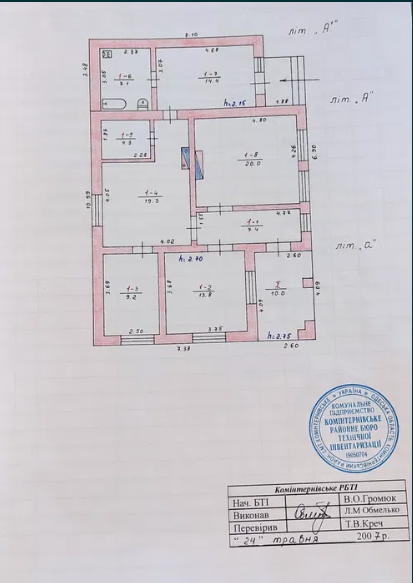 літ. „А¹"
8.10
2.37
4.68
2.48
3.05
1-6
7.1
3.07
1-7
14.4
h=2.15
1.88
літ. „А"
1-5
4.3
2.28
4.80
1-8
20.0
4.26
6.90
10.99
4.05
1-4
19.3
1.55
4.77
1-1
7.4
4.02
h=2.70
2.60
літ. „а"
3.69
1-3
9.2
3.68
1-2
13.8
4.09
I
10.0
4.09
2.50
3.75
h=2.75
7.38
2.60
УКРАЇНА
КОМУНАЛЬНЕ
ПІДПРИЄМСТВО
КОМІНТЕРНІВСЬКЕ
РАЙОННЕ БЮРО
ТЕХНІЧНОЇ
ІНВЕНТАРИЗАЦІЇ
Комінтернівське РБТІ
Нач. БТІ В.О.Громюк
Виконав Л.М Обмелько
Перевірив Т.В.Креч
"24" травня 2007р.